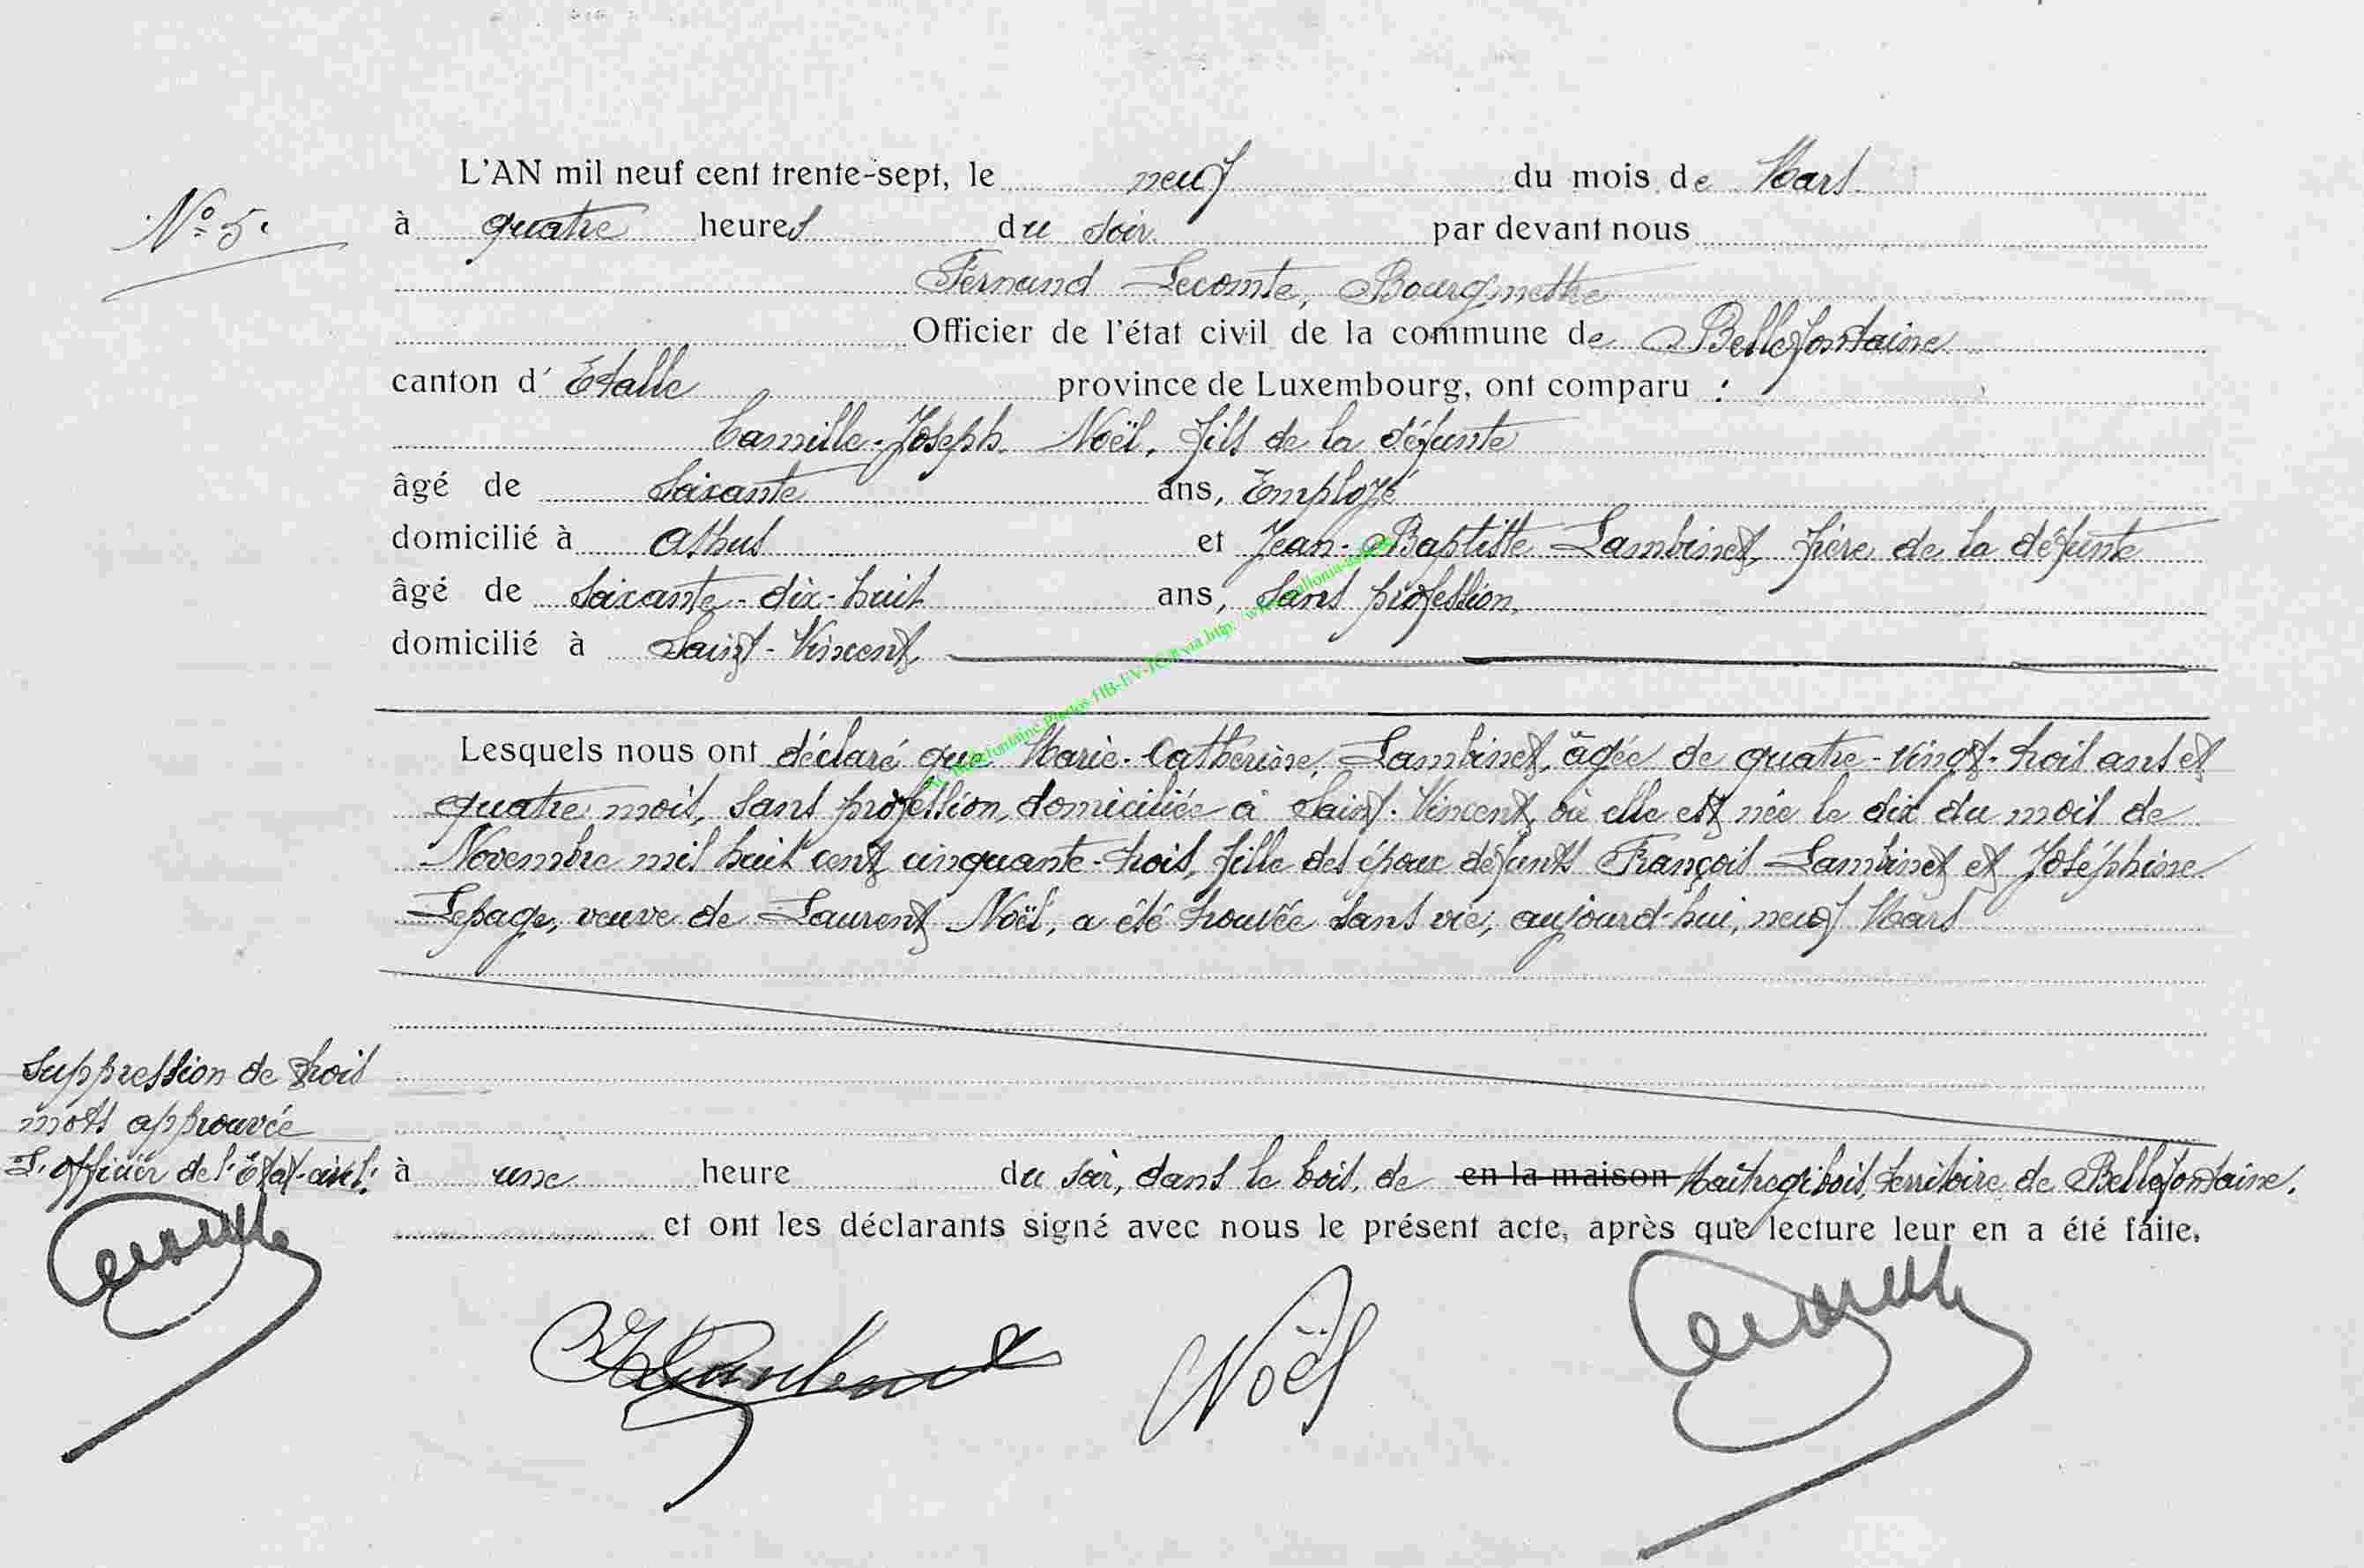 L'AN mil neuf cent trente-sept, le neuf du mois de Mars
N° 5.
à quatre heures du soir par devant nous
Fernand Lecomte, Bourgmestre
Officier de l'état civil de la commune de Bellefontaine
canton d'Etalle province de Luxembourg, ont comparu :
Camille-Joseph Noël, fils de la défunte
âgé de soixante ans, Employé
domicilié à Athus et Jean-Baptiste Lambinet, frère de la défunte
âgé de soixante-dix-huit ans, sans profession,
domicilié à Saint-Vincent,
Lesquels nous ont déclaré que Marie-Catherine, Lambinet, âgée de quatre-vingt-trois ans et
quatre mois, sans profession, domiciliée à Saint-Vincent, où elle est née le dix du mois de
Novembre mil huit cent cinquante-trois, fille des époux défunts François Lambinet et Joséphine
Lepage, veuve de Laurent Noël, a été trouvée sans vie, aujourd'hui, neuf Mars
Suppression de trois
mots approuvée
L'officier de l'Etat-civil:
à une heure du soir, dans le bois, de en la maison Maîtregibois, territoire de Bellefontaine.
et ont les déclarants signé avec nous le présent acte, après que lecture leur en a été faite.
Noël